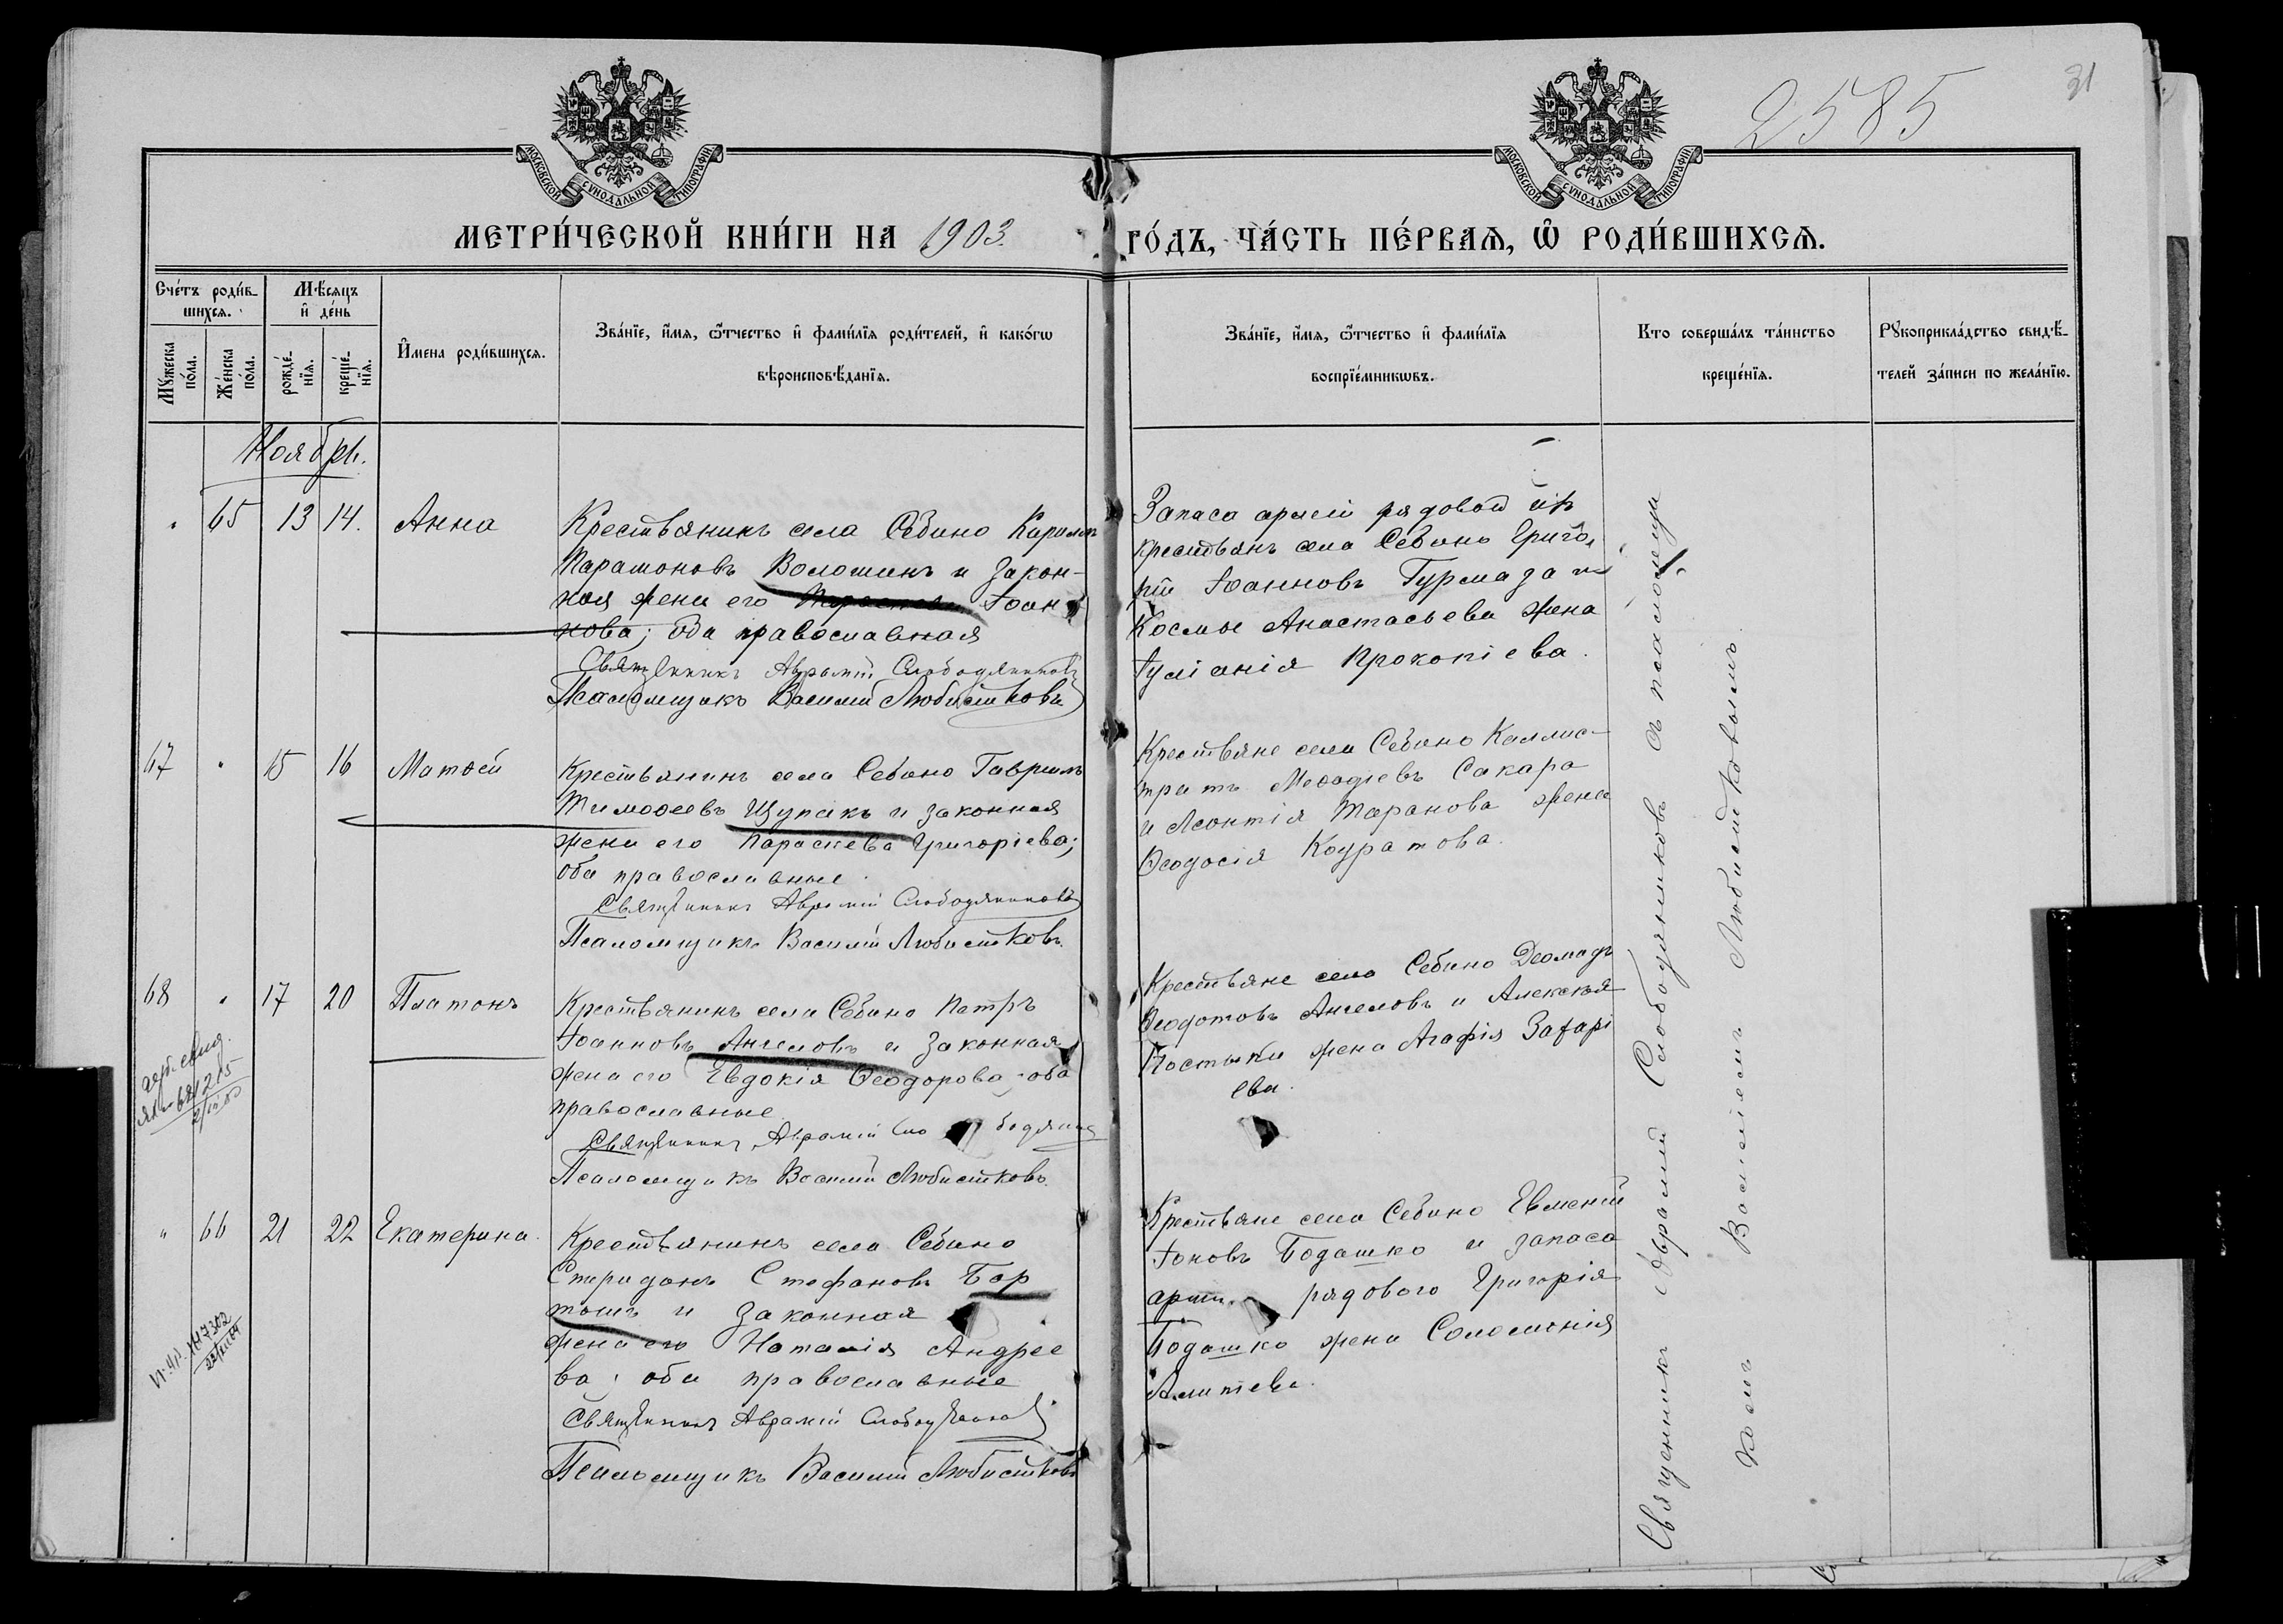 2585
31
МОСКОВСКОЙ СѴНОДАЛЬНОЙ ТИПОГРАФІИ
МОСКОВСКОЙ СѴНОДАЛЬНОЙ ТИПОГРАФІИ
МЕТРИ́ЧЕСКОЙ КНИ́ГИ НА 1903. ГО́ДЪ, ЧА́СТЬ ПЕ́РВАЯ, Ѽ РОДИ́ВШИХСЯ.
Сче́тъ роди́в-
шихся.
Мѣ́сяцъ
и҆ де́нь
Му́жеска по́ла.
Же́нска по́ла.
рожде́-
нїя.
креще́-
нїя.
И҆мена роди́вшихся.
Зва́нїе, и҆́мя, ѻ҆́тчество и҆ фами́лїя роди́телей, и҆ како́гѡ
вѣроисповѣ́данїя.
Зва́нїе, и҆́мя, ѻ҆́тчество и҆ фами́лїя
воспрїе́мникѡвъ.
Кто соверша́лъ та́инство
креще́нїя.
Рꙋкоприкла́дство свидѣ́-
телей за́писи по жела́нїю.
Ноябрь.
" 65 13 14. Анна
Крестьянинъ села Себино Кириллъ
Парамоновъ Волошинъ и закон-
ная жена его Іоан
нова; оба православная
Священникъ Аврамій Слободяниковъ
Псаломщикъ Василій Любистковъ
Запаса арміи рядовой изъ
крестьянъ села Себино Григо
рій Іоанновъ Гурмаза и
Космы Анастасьева жена
Іуліанія Прокопіева.
67 " 15 16 Матѳей
Крестьянинъ села Себино Гавріилъ
Тимоѳеевъ Щупакъ и законная
жена его Параскева Григоріева;
оба православные
Священникъ Аврамій Слободяниковъ
Псаломщикъ Василій Любистковъ
Крестьяне села Себино Каллис-
тратъ Меѳодіевъ Сакара
и Леонтія Таранова жена
Ѳеодосія Кодратова.
68 " 17 20 Платонъ
Крестьянинъ села Себино Петръ
Іоанновъ Ангеловъ и законная
жена его Евдокія Ѳеодорова оба
православные
Священникъ Аврамій Сло бодяник
Псаломщикъ Василій Любистковъ
Крестьяне села Себино Деомидъ
Ѳеодотовъ Ангеловъ и Алексѣя
Костыки жена Агафія Захарі
ева.
" 66 21 22 Екатерина.
Крестьянинъ села Себино
Спиридонъ Стефановъ Бор
тошъ и законная
жена его Наталія Андрее
ва; оба православные
Священникъ Аврамій
Псаломщикъ Василій Любистковъ
Крестьяне села Себино Евмений
Іоновъ Бодашко и запаса
арміи рядового Григорія
Бодашко жена Соломонія
Священникъ Аврамій Слободяниковъ съ псаломщи
комъ Василіемъ Любистковымъ